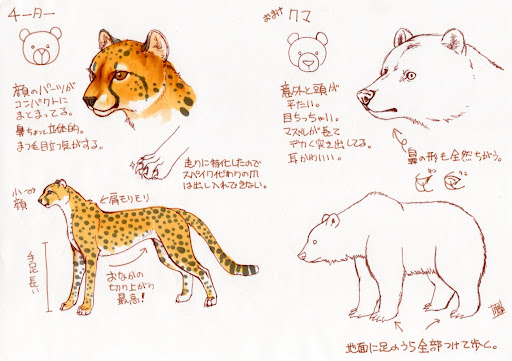 チーター
顔のパーツが
コンパクトに
まとまってる。
鼻ちょっと立体的。
まつ毛目立つ気がする。
走りに特化したので
スパイク代わりの爪
は出し入れできない。
小さめ
顔
肩モリモリ
手足長い
おなかの
切り上がり
最高!
おまけ クマ
意外と頭が
平たい。
目ちっちゃい。
マズルが長くて
デカく突き出してる。
耳かわいい。
鼻の形も全然ちがう。
地面に足のうら全部つけて歩く。